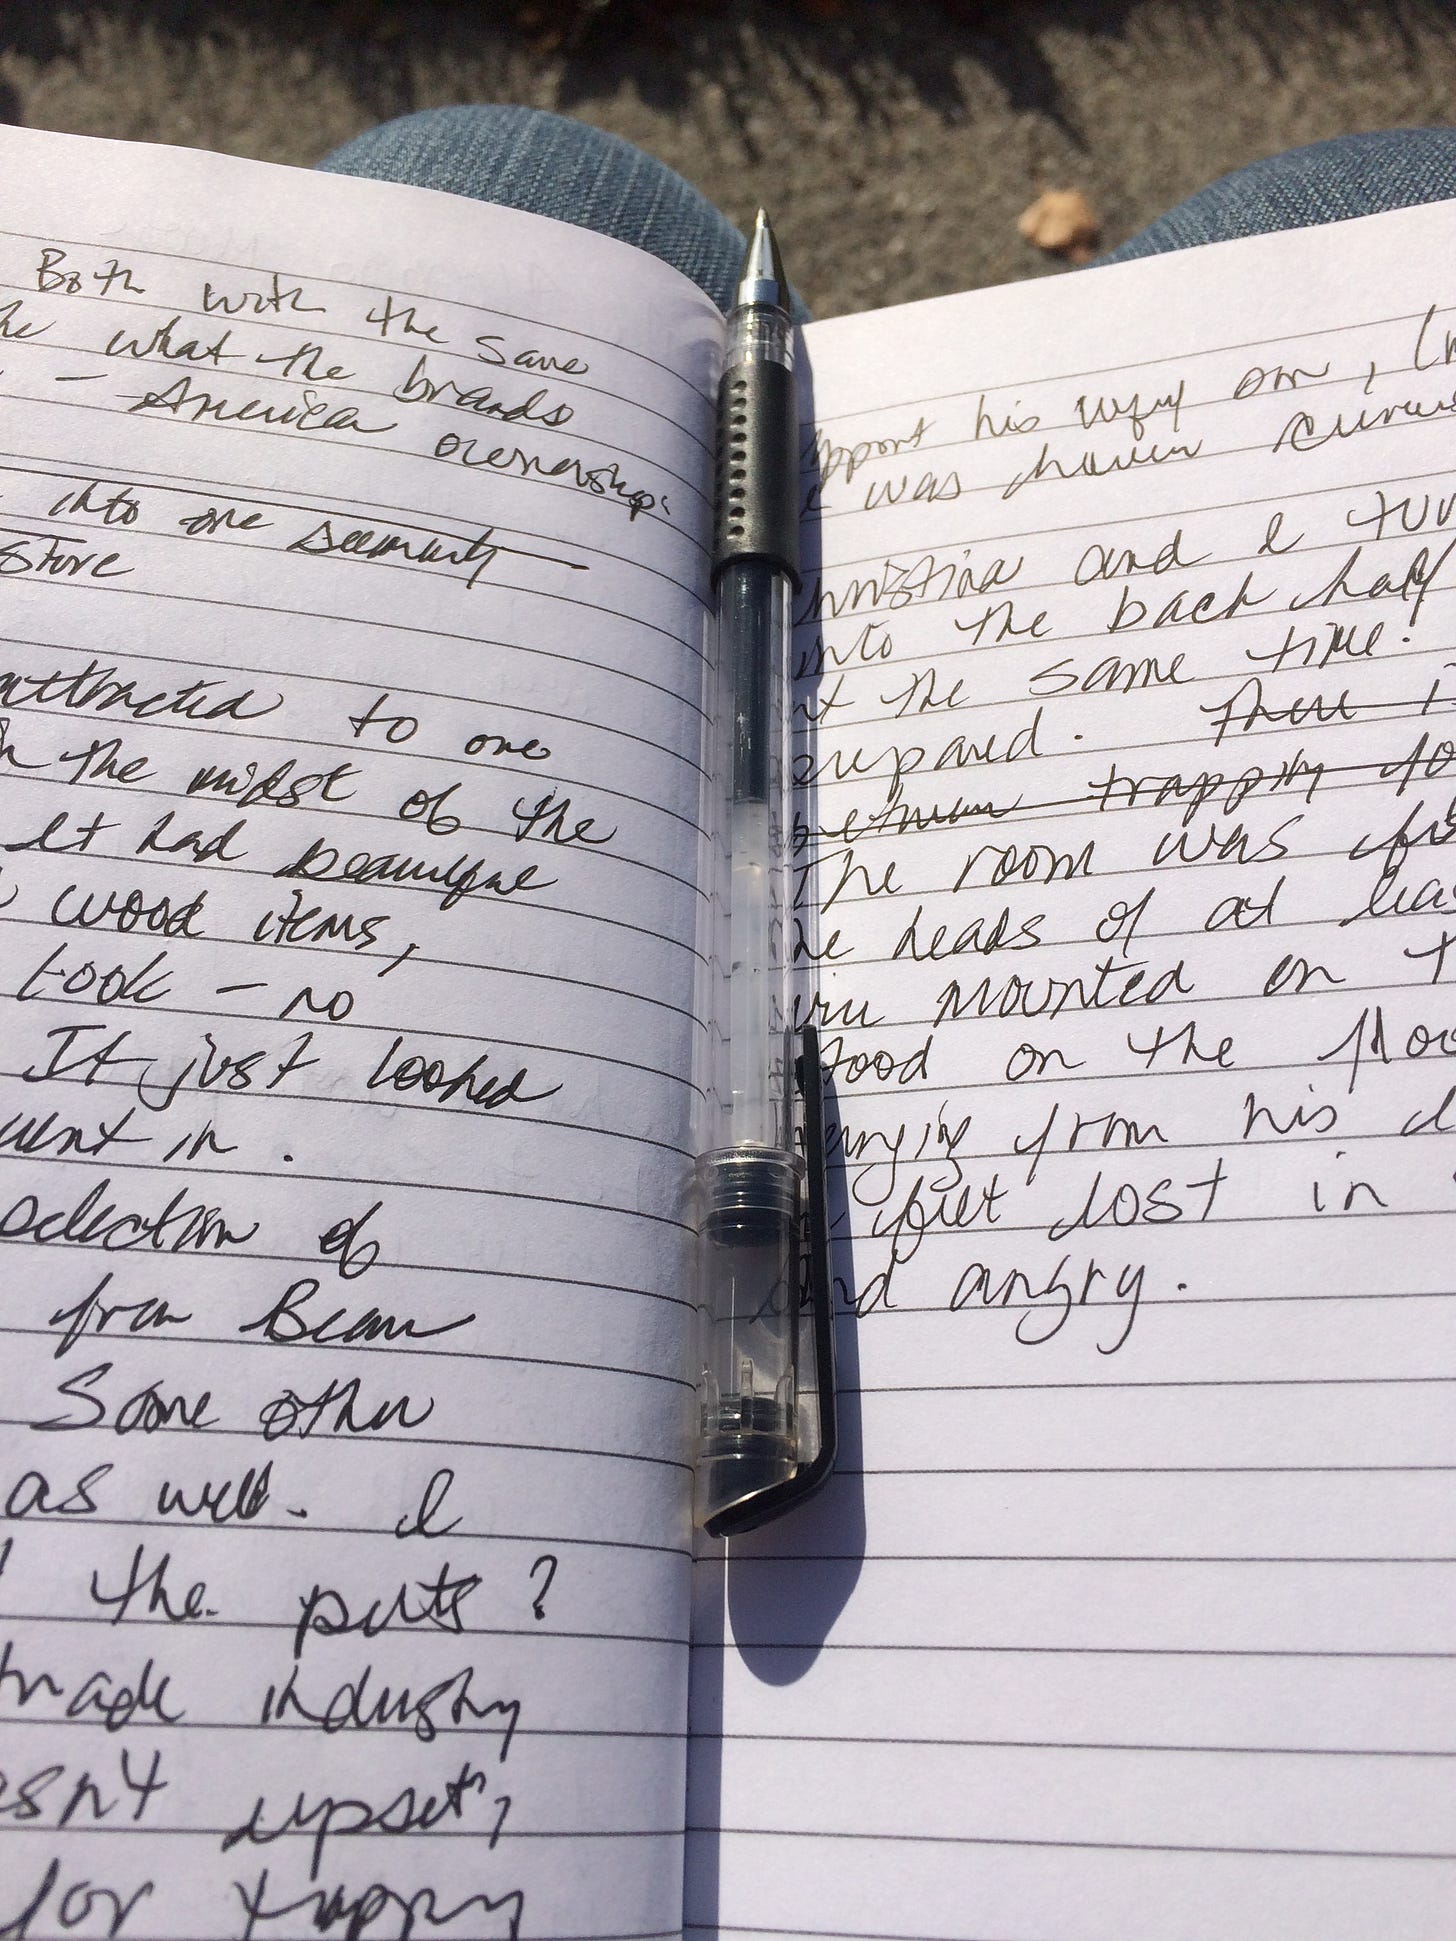 Both with the same
he what the brands
– American ownership.
into one
store
attracted to one
in the midst of the
It had beautiful
wood items,
took – no
It just looked
went in.
selection of
from
Some other
as well. I
the pelts?
trade industry
esn't upset,
for
his
was
hristina and I tur
into the back half
at the same time.
prepared. There i
between trapping fo
The room was
he heads of at leas
mounted on t
tood on the floo
from his d
felt lost in
and angry.